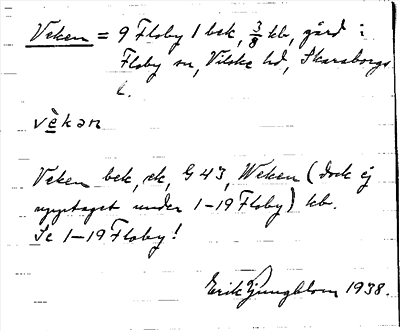 Veken = 9 Floby 1 bek, 3/8 kb, gård i
Floby sn, Vilske hd, Skaraborgs
l.
vèkan
Veken bek, ek, G 43, Weken (dock ej
upptaget under 1-19 Floby) kb.
Se 1-19 Floby!
Erik Ljungblom 1938.